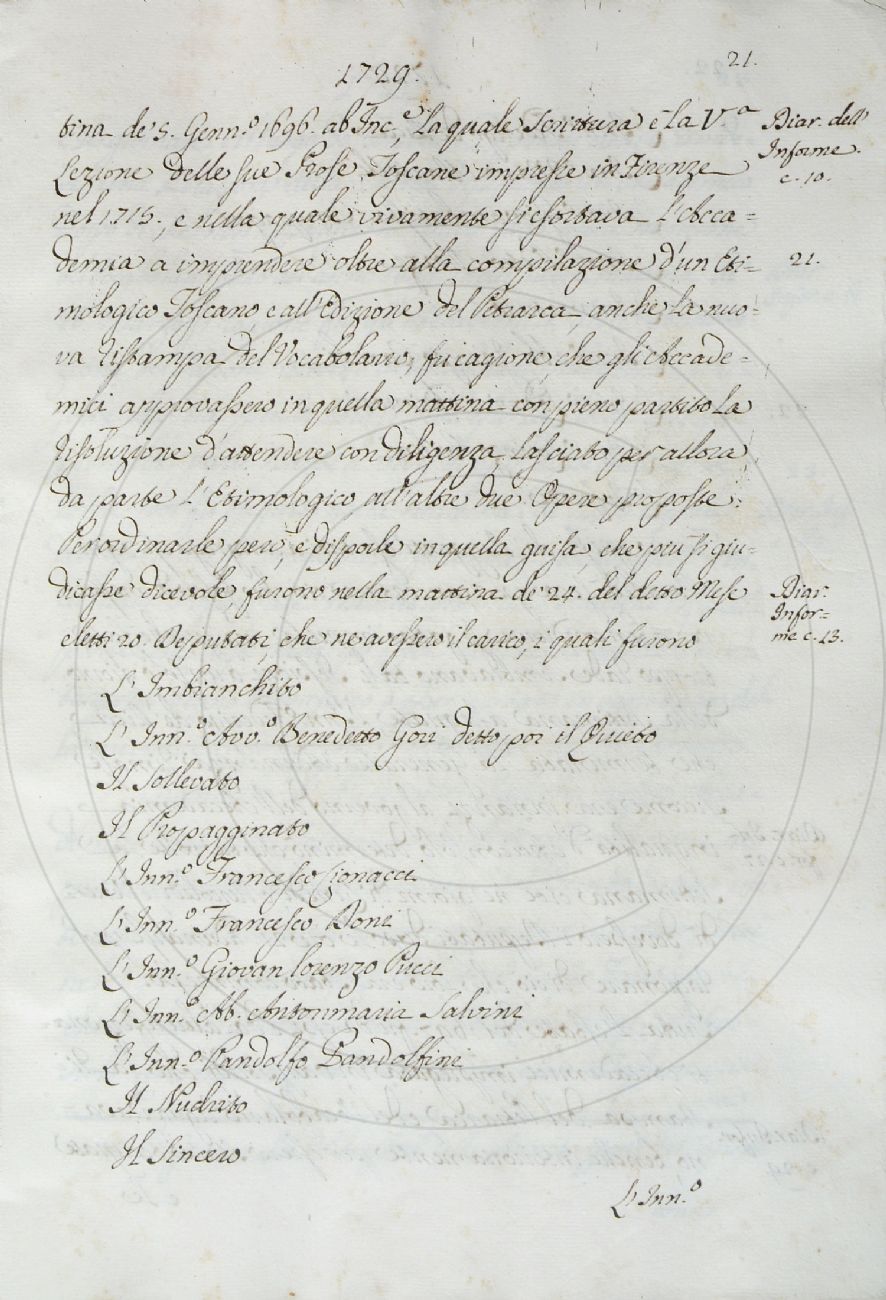 1729.
21.
tina de' 5. Genn.º 1696. ab Inc.e, la quale Scrittura è la V.a
Lezione delle sue Prose Toscane impresse in Firenze
nel 1715., e nella quale vivamente si esortava l'Acca=
demia a imprendere oltre alla compilazione d'un Eti=
mologico Toscano, e all'Edizione del Petrarca, anche la nuo=
va ristampa del Vocabolario; fu cagione, che gli Accade=
mici approvassero in quella mattina con pieno partito la
risoluzione d'attendere con diligenza, lasciato per allora
da parte l'Etimologico, all'altre due Opere proposte.
Per ordinarle però, e disporle in quella guisa, che più si giu=
dicasse dicevole, furono nella mattina de' 24. del detto Mese
eletti 20. Deputati, che ne avessero il carico, i quali furono
L'Imbianchito
L'Inn.º Avv.º Benedetto Gori detto poi il Quieto
Il Sollevato
Il Propagginato
L'Inn.º Francesco Cionacci
L'Inn.º Francesco Doni
L'Inn.º Giovan Lorenzo Pucci
L'Inn.º Ab. Antonmaria Salvini
L'Inn.º Pandolfo Pandolfini
Il Nudrito
Il Sincero
L'Inn.º
Diar. dell'
Informe
c. 10.
21.
Diar.
Infor=
me c. 13.